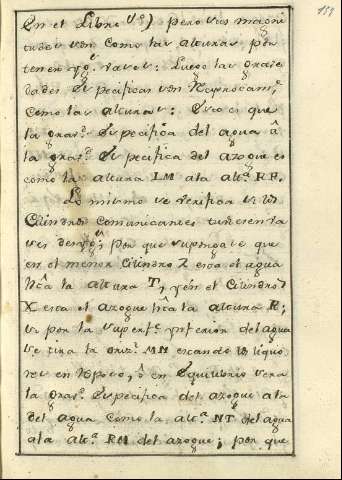 159
En el Libro 1º) pero sus magni
tudes son como las alturas por
tener ygs. vases: Luego las grave
dades Specificas son Reprocams.
como las alturas: Esto es que
la gravd. Specifica del agua â
la gravd. Specifica del azogue es
como la altura LM ala alta. RP.
Lo mismo se verifica si los
Cilindros comunicantes tubieren la
ves desygs; por que supongase que
en el menor Cilindro Z esta el agua
hta. la altura T, y en el Cilindro
X esta el azogue hta. la altura R;
si por la superfe. ynferior del agua
se tira la orizl. MN estando los liquo
res en Reposo, ô en Equilibrio sera
la gravd. Specifica del azogue ala
del agua como la alta. NT del agua
ala alta. RM del azogue; por que